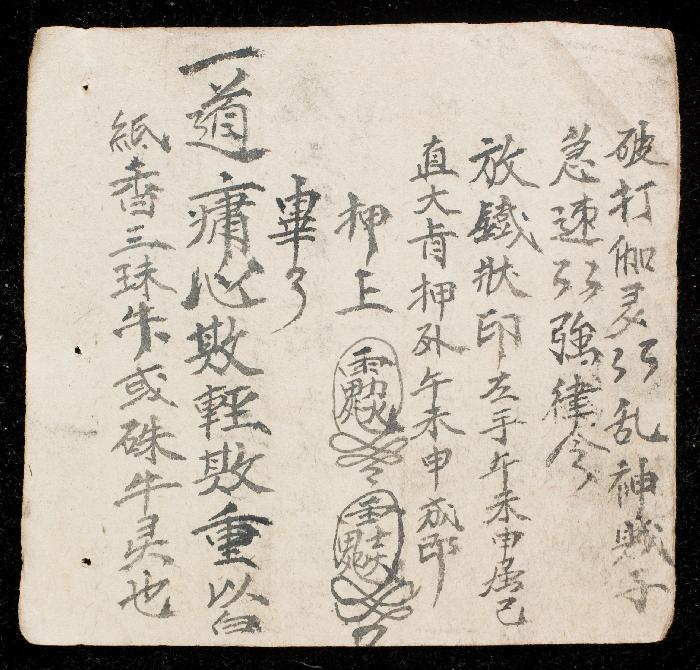 破打伽灵以以乱神贼子
急速以以强律令
放鐵狀印左手午未申
直大肯押外午未申成印
押上
畢了
一道痛心欺輕欺重以白
紙香三珠朱或硃牛灵也